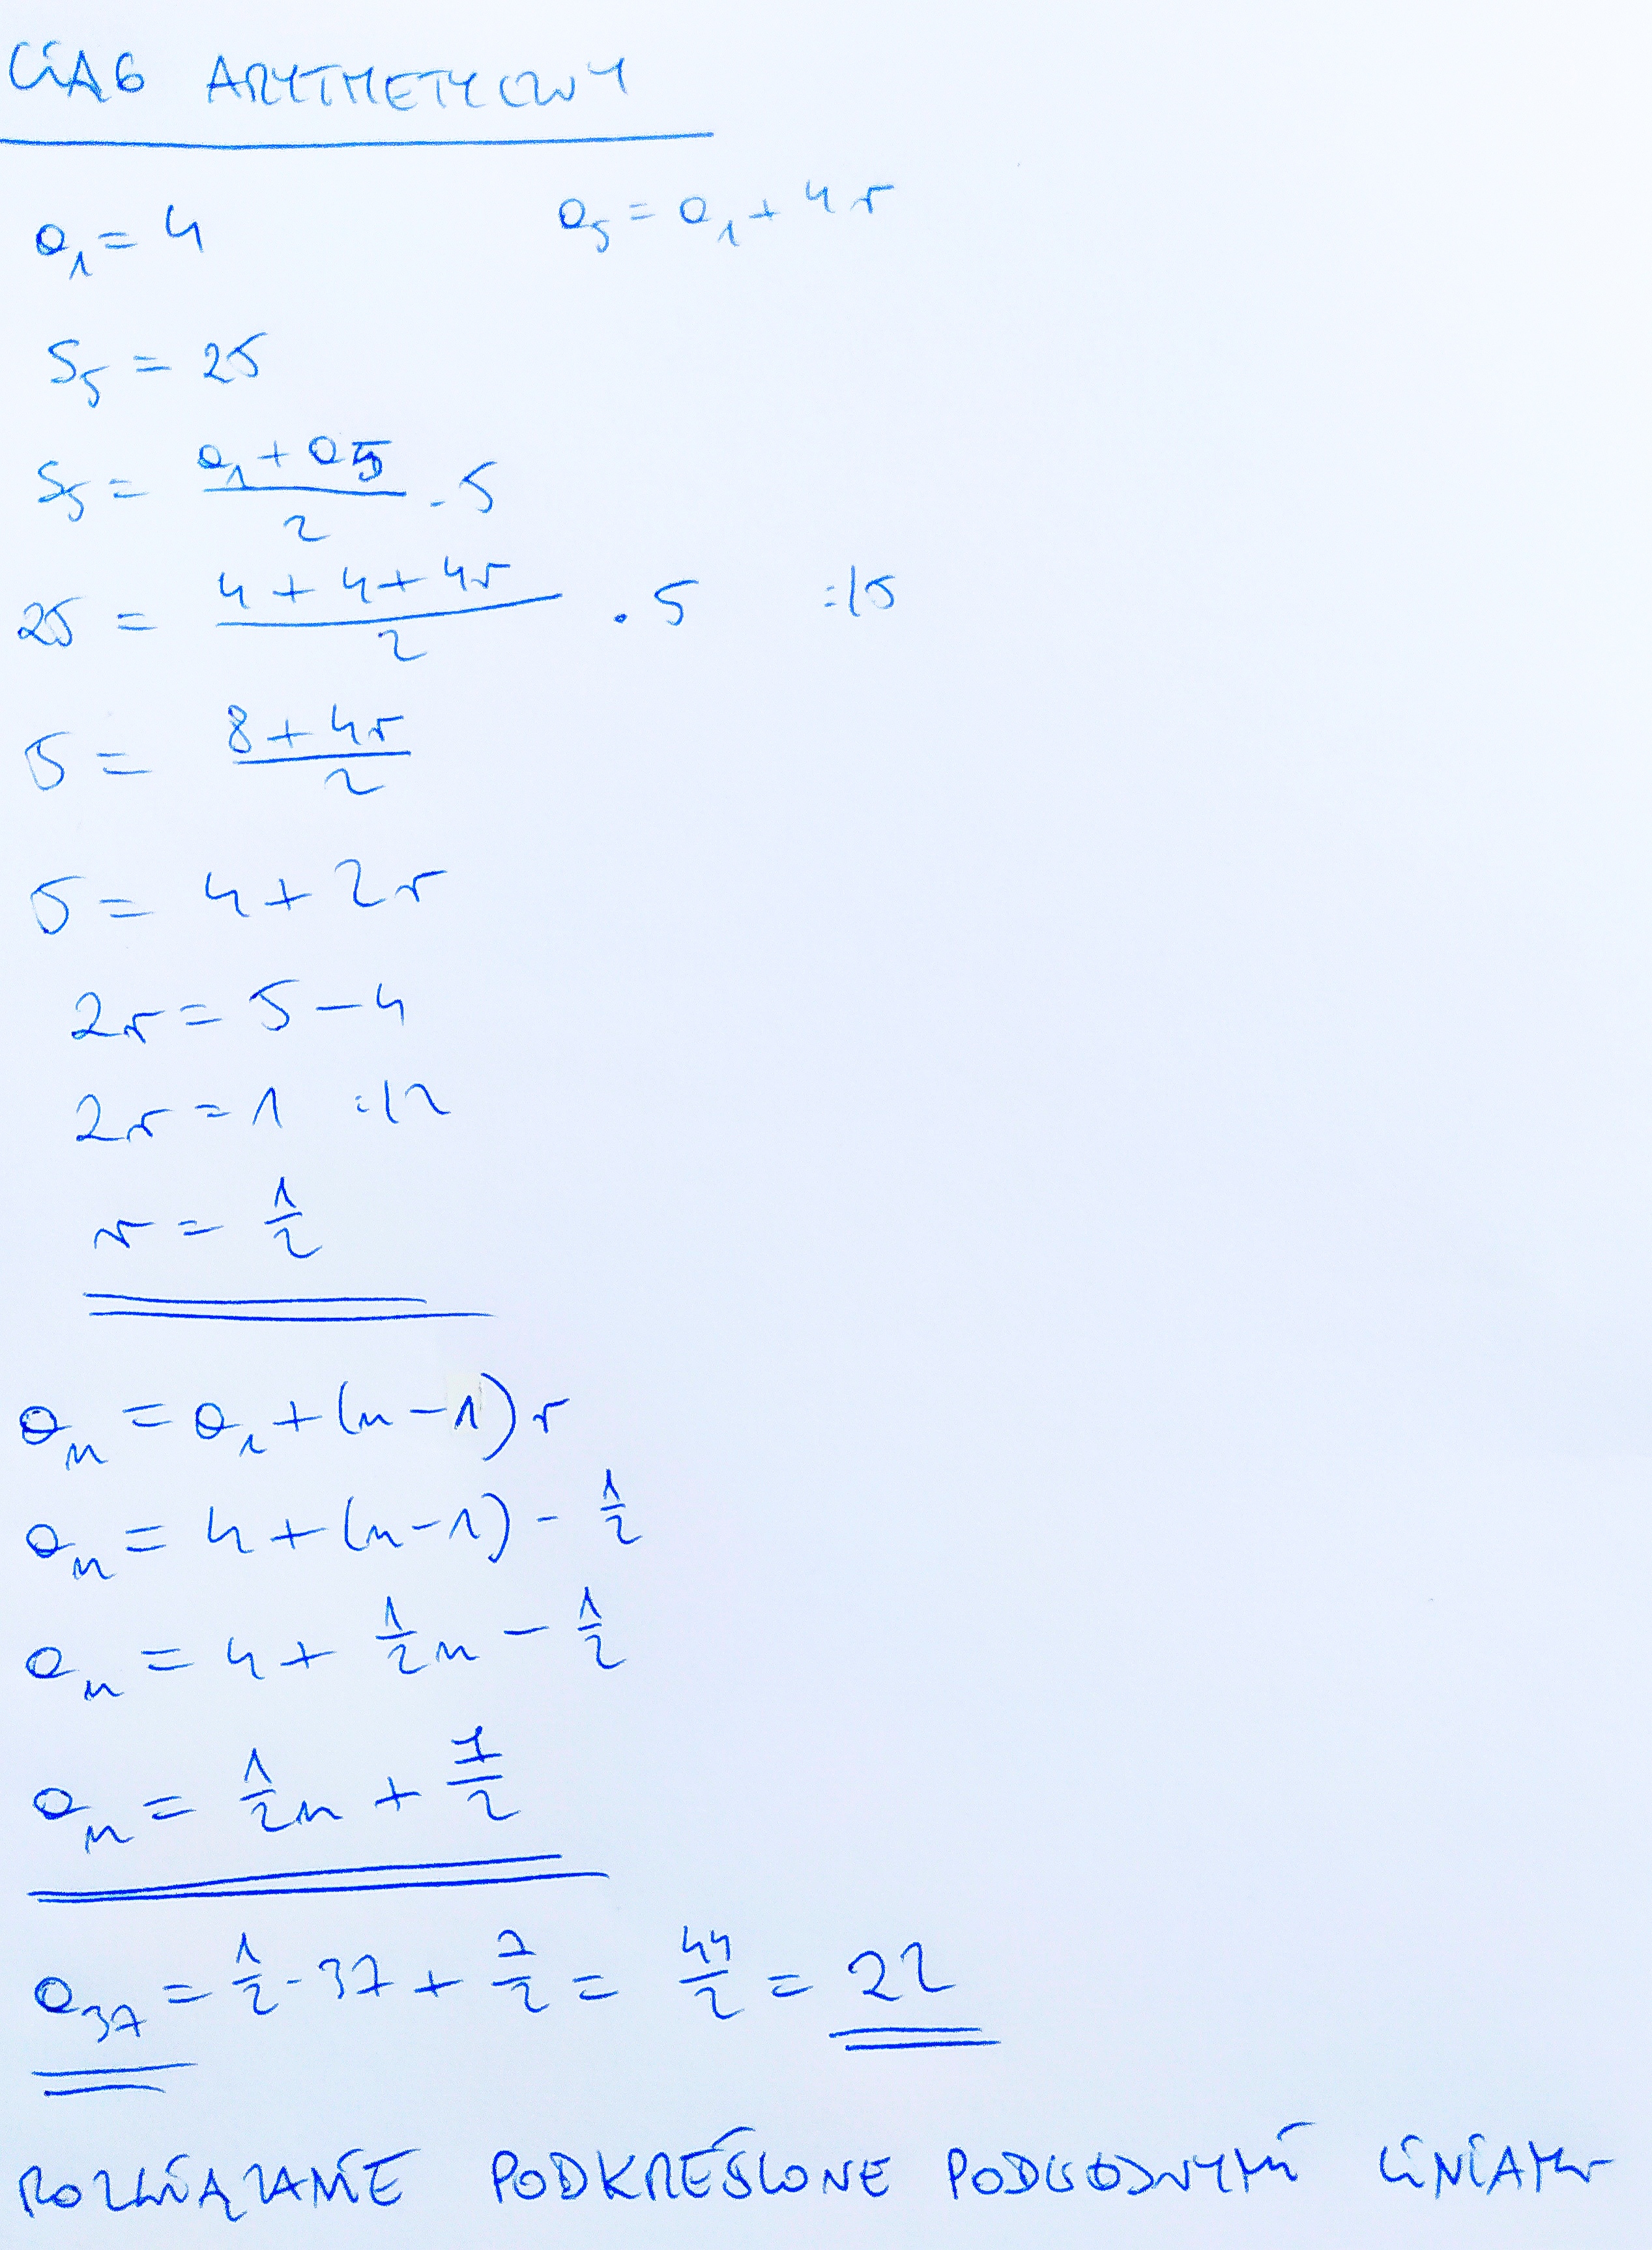 CIĄG ARYTMETYCZNY
a₁ = 4    a₅ = a₁ + 4r
S₅ = 25
S₅ = (a₁ + a5)/2 · 5
25 = (4 + 4 + 4r)/2 · 5    :/5
5 = (8 + 4r)/2
5 = 4 + 2r
2r = 5 - 4
2r = 1   :/2
r = 1/2
aₙ = a₁ + (n - 1) r
aₙ = 4 + (n - 1) · 1/2
aₙ = 4 + 1/2 n - 1/2
aₙ = 1/2 n + 7/2
a₃₇ = 1/2 · 37 + 7/2 = 44/2 = 22
ROZWIĄZANIE PODKREŚLONE PODWÓJNYMI LINIAMI